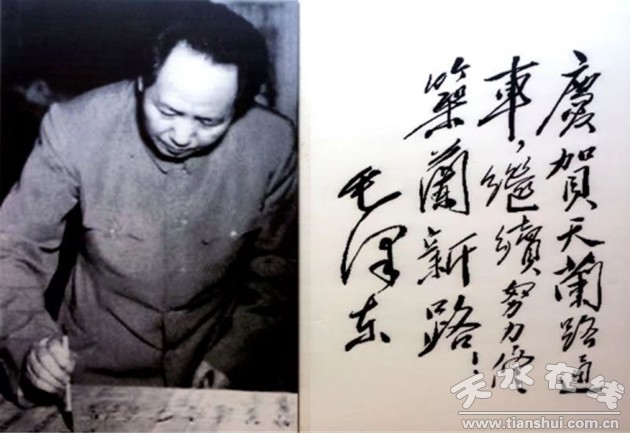 慶賀天蘭路通
車，繼續努力修
築蘭新路！
毛澤东
天水在线
www.tianshui.com.cn